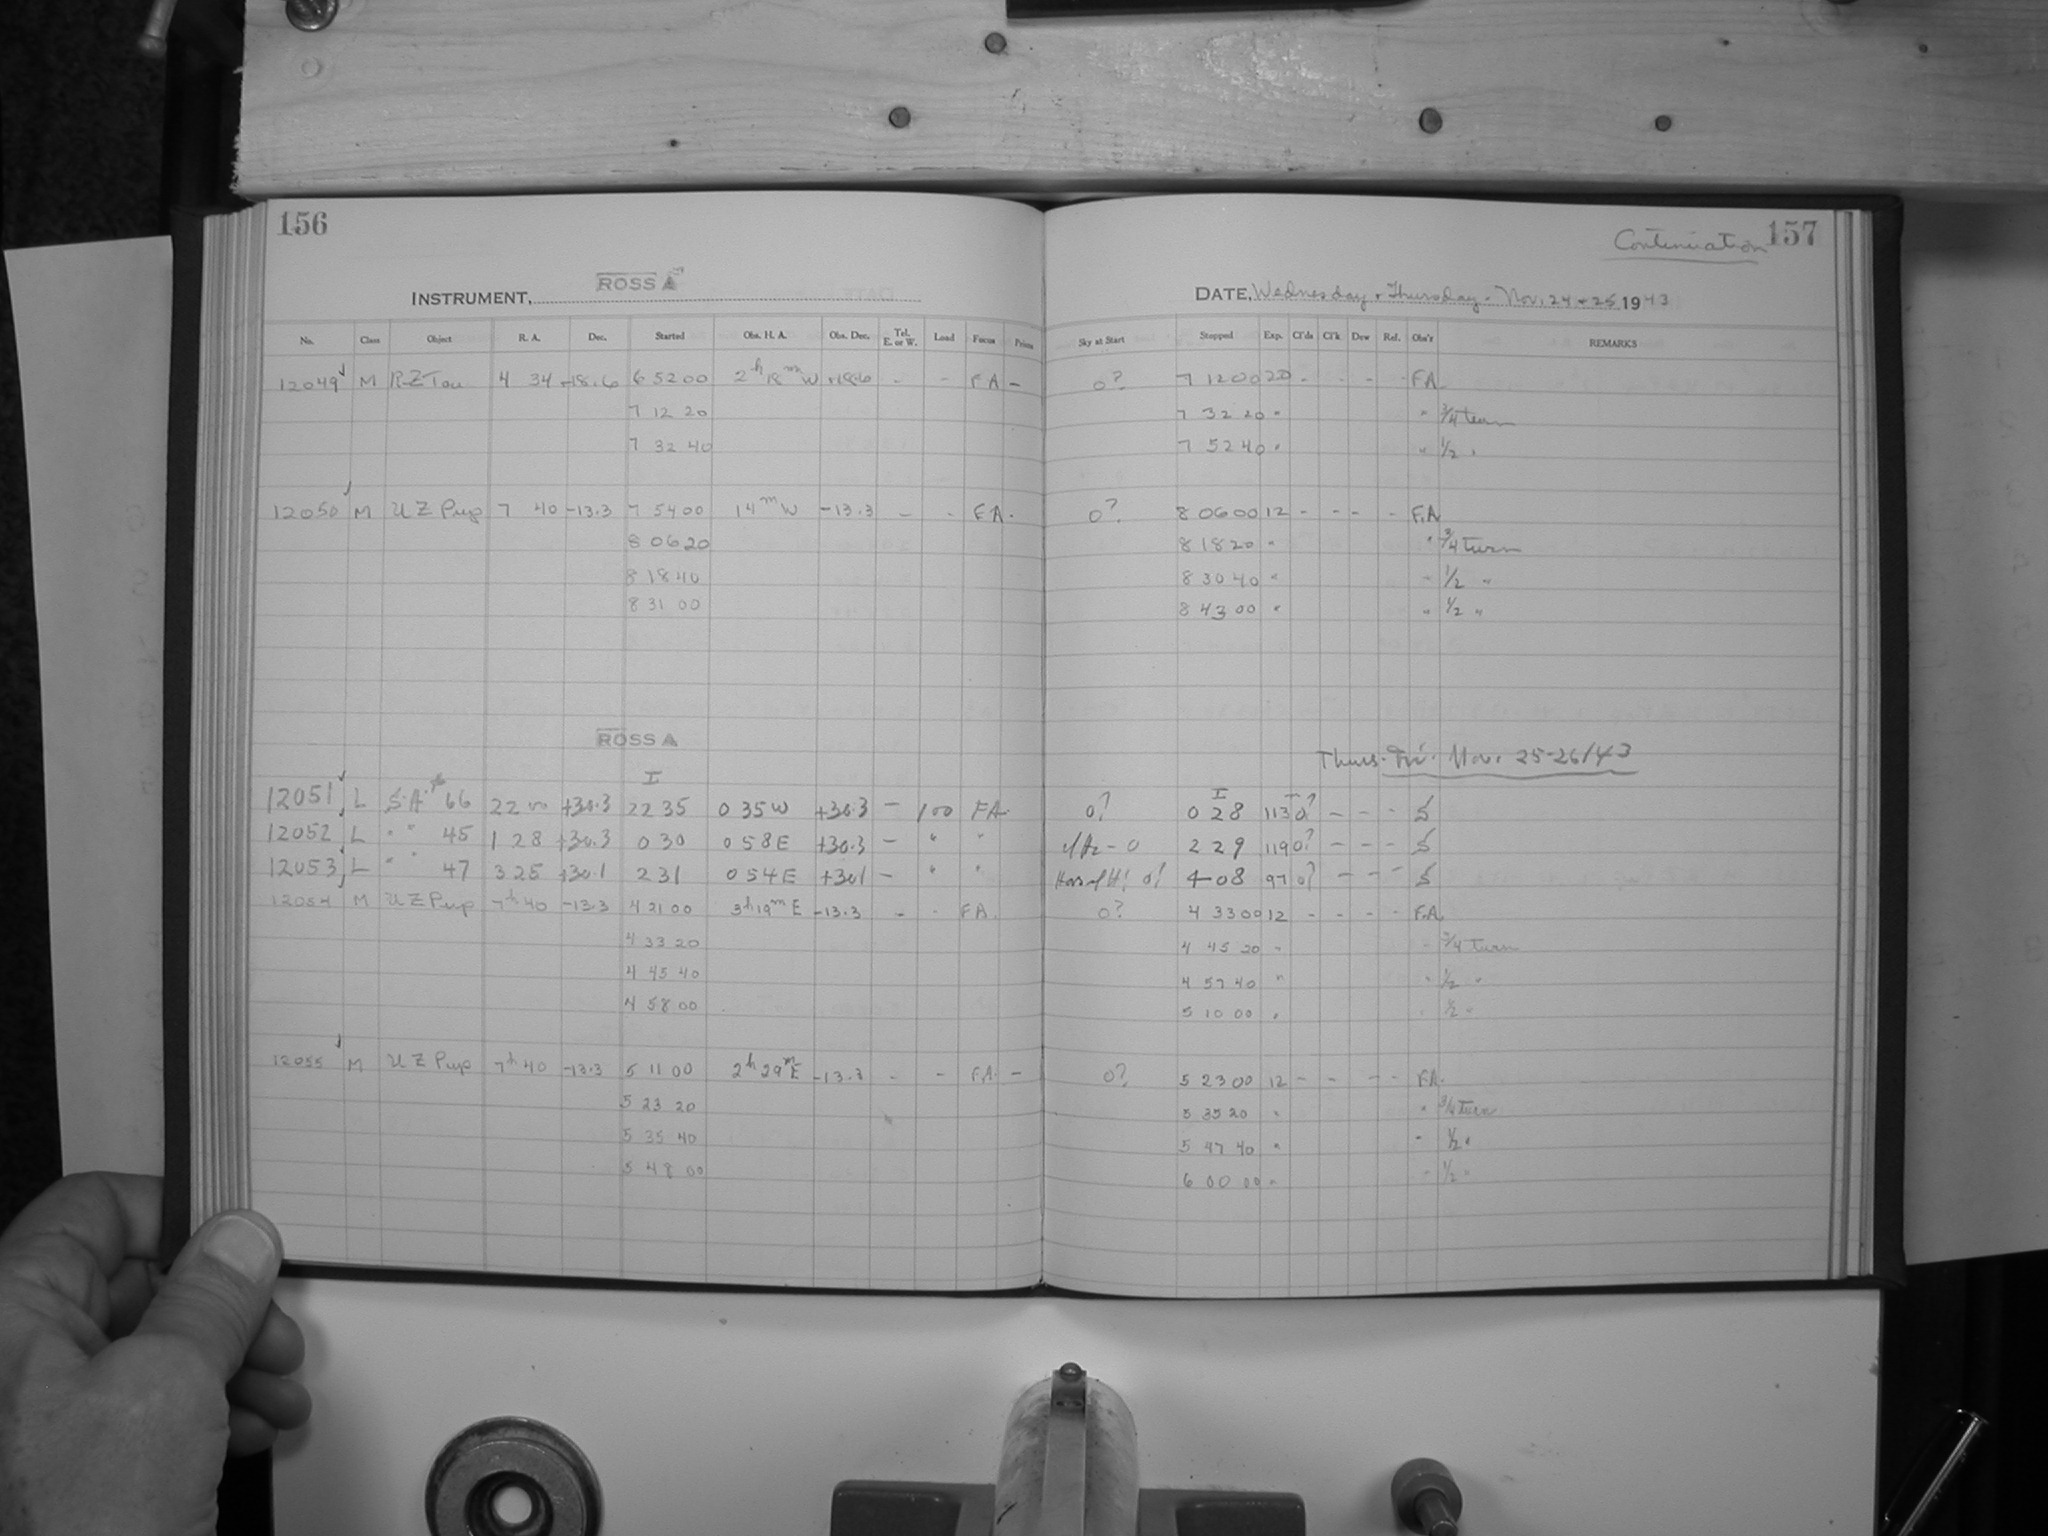 156
ROSS A
INSTRUMENT,
No. Class Object R. A. Dec. Started Obs. H. A. Obs. Dec. Tel. E. or W. Load Focus Prisms
12049 M RZ Tau 4 34 +18.6 6 52 00 2h 18m W +18.6 - - FA -
7 12 20
7 32 40
12050 M UZ Pup 7 40 -13.3 7 54 00 14m W -13.3 - - FA -
8 06 20
8 18 40
8 31 00
ROSS A
I
12051 L S.A. 66 22 00 +30.3 22 35 0 35 W +30.3 - 100 FA.
12052 L " " 45 1 28 +30.3 0 30 0 58 E +30.3 - " "
12053 L " " 47 3 25 +30.1 2 31 0 54 E +30.1 - " "
12054 M UZ Pup 7h 40 -13.3 4 21 00 3h 19m E -13.3 - - FA.
4 33 20
4 45 40
4 58 00
12055 M UZ Pup 7h 40 -13.3 5 11 00 2h 29m E -13.3 - - FA. -
5 23 20
5 35 40
5 48 00
Continuation 157
DATE, Wednesday + Thursday - Nov. 24 + 25 1943
Sky at Start Stopped Exp. Cl'ds Cl'k Dew Ref. Obs'r REMARKS
0? 7 12 00 20 - - - FA
7 32 20 " " 3/4 turn
7 52 40 " " 1/2 "
0? 8 06 00 12 - - - - F.A
8 18 20 " " 3/4 turn
8 30 40 " " 1/2 "
8 43 00 " " 1/2 "
Thurs. Fri. Nov. 25-26/43
I
0? 0 28 113 0? - - - S
0 2 29 119 0? - - - S
0? 4 08 97 0? - - - S
0? 4 33 00 12 - - - - F.A.
4 45 20 " " 3/4 turn
4 57 40 " " 1/2 "
5 10 00 " " 1/2 "
0? 5 23 00 12 - - - - F.A.
5 35 20 " " 3/4 turn
5 47 40 " " 1/2 "
6 00 00 " " 1/2 "